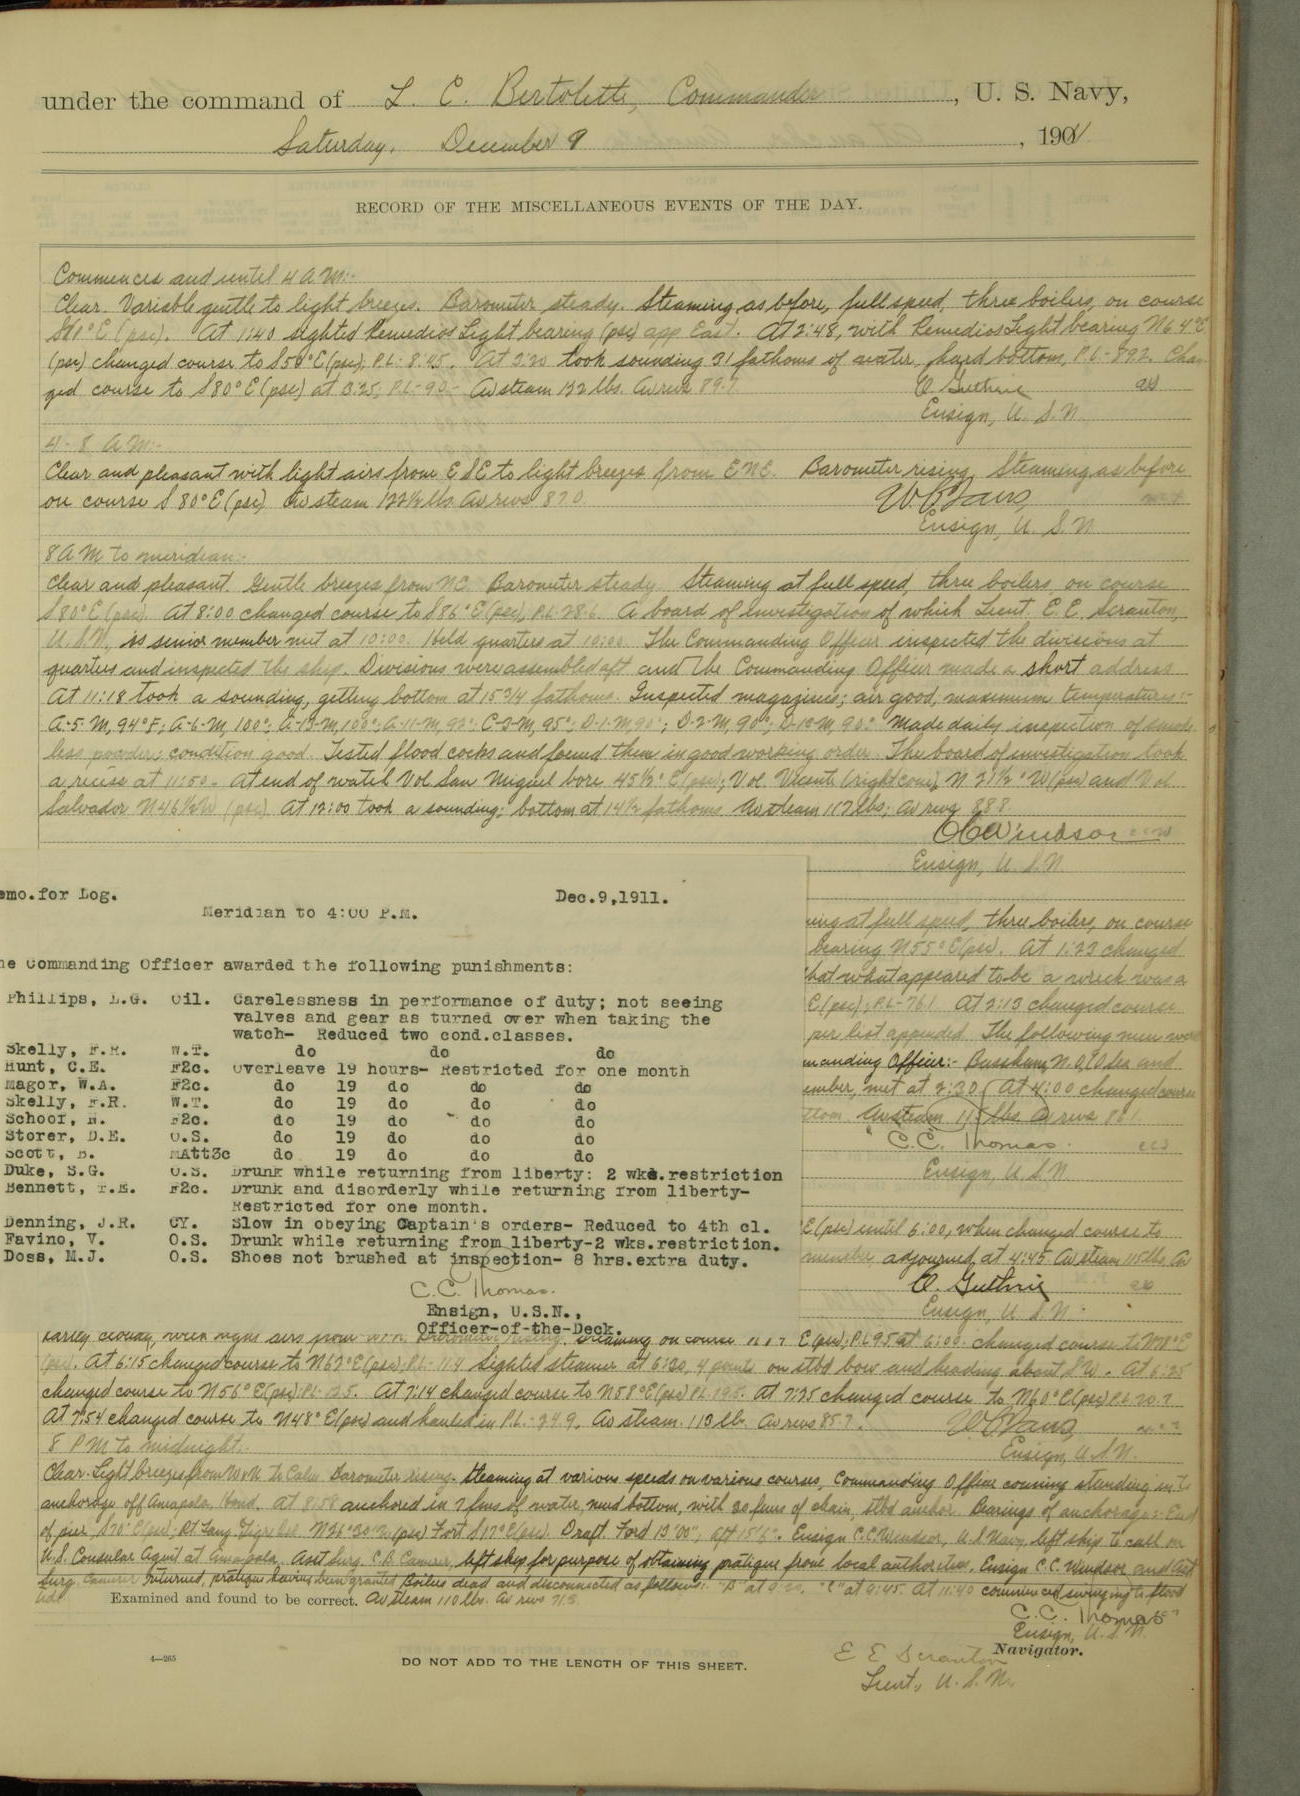 under the command of L. C. Bertolette, Commander, U. S. Navy,
Saturday, December 9, 1901
RECORD OF THE MISCELLANEOUS EVENTS OF THE DAY.
Commences and until 4 A M:-
Clear. Variable gentle to light breezes. Barometer steady. Steaming as before, full speed, three boilers, on course
E (psc). At 1:40 sighted Remedios Light bearing (psc) app East. At 2:48, with Remedios Light bearing N64°E
(psc) changed course to S50°E (psc), P.L.- 84.5. At 3:20 took sounding 31 fathoms of water, hard bottom, P.L.-89.2. Chan-
ged course to S80°E (psc) at 3:25, P.L-90- Av steam 122 lbs. Av revs 89.7
O. Guthrie
Ensign, U. S. N.
4 - 8 A M:-
Clear and pleasant with light airs from ESE to light breezes from ENE. Barometer rising. Steaming as before
on course S 80°E (psc) Av steam 122½ lbs. Av revs 87.0
Ensign, U. S. N.
8 A M to meridian:-
Clear and pleasant. Gentle breezes from NE. Barometer steady. Steaming at full speed, three boilers, on course
S80°E (psc). At 8:00 changed course to S86°E (psc), P.L.-28.6. A board of investigation of which Lieut. E. E. Scranton,
U.S.N., is senior member met at 10:00. Held quarters at 10:00. The Commanding Officer inspected the divisions at
quarters and inspected the ship. Divisions were assembled aft and the Commanding Officer made a short address.
At 11:18 took a sounding, getting bottom at 15 3/4 fathoms. Inspected magazines; air good, maximum temperatures:-
A-5-M, 94°F; A-6-M, 100°; A-13-M, 100°; A-11-M, 92°; C-3-M, 95°; D-1-M, 90°; D-2-M, 90°; D-12-M, 90°. Made daily inspection of smoke-
less powder; condition good. Tested flood cocks and found them in good working order. The board of investigation took
a recess at 11:50- At end of watch Vol San Miguel bore 45½° E (psc); Vol Vicente (right cone), N 21½° W (psc) and Vol
Salvador N46½W (psc). At 12:00 took a sounding; bottom at 14½ fathoms. Av steam 117 lbs; Av revs 88.8.
CC Windsor
Ensign, U. S. N.
emo.for Log. Dec.9,1911.
Meridian to 4:00 P.M.
he Commanding Officer awarded the following punishments:
Phillips, L.G. Oil. Carelessness in performance of duty; not seeing
valves and gear as turned over when taking the
watch- Reduced two cond.classes.
Skelly, F.R. W.T. do do do
Hunt, C.E. F2c. Overleave 19 hours- Restricted for one month
Magor, W.A. F2c. do 19 do do do
Skelly, F.R. W.T. do 19 do do do
Schoof, H. F2c. do 19 do do do
Storer, D.E. O.S. do 19 do do do
Scott, B. MAtt3c do 19 do do do
Duke, S.G. O.S. Drunk while returning from liberty: 2 wks.restriction
Bennett, T.E. F2c. Drunk and disorderly while returning from liberty-
Restricted for one month.
Denning, J.R. CY. Slow in obeying Captain's orders- Reduced to 4th cl.
Favino, V. O.S. Drunk while returning from liberty-2 wks.restriction.
Doss, M.J. O.S. Shoes not brushed at inspection- 8 hrs.extra duty.
C.C. Thomas.
Ensign, U.S.N.,
Officer-of-the-Deck.
ing at full speed, three boilers, on course
bearing N55°E (psc). At 1:23 changed
that what appeared to be a wreck was a
E (psc); P.L-76.1 At 2:13 changed course
per list appended. The following men were
manding Officer:- and
ember, met at 2:30. At 4:00 changed course
ttom. Av steam lbs. Av revs 86.1
C.C. Thomas.
Ensign, U. S. N.
E (psc) until 6:00, when changed course to
member adjourned at 4:45 Av steam 115 lbs. Av
O. Guthrie
Ensign, U. S. N.
Partly cloudy, with light airs from Barometer rising. Steaming on course E (psc), P.L 95 at 6:00. changed course to
(psc). At 6:15 changed course to N62°E (psc), P.L.-11.4 Sighted steamer at 6:20, 4 points on stbd bow and heading about S W. At 6:25
changed course to N56°E (psc) P.L- . At 7:14 changed course to N58°E (psc) P.L 19.5. At 7:25 changed course to N60°E (psc) P.L 20.7
At 7:54 changed course to N48°E (psc) and hauled in P.L.-24.9. Av steam 113 lb. Av revs 85.7
Ensign, U.S.N.
8 P M to midnight.
Clear. Light breezes from WxN to Calm. Barometer rising. Steaming at various speeds on various courses, Commanding Officer conning standing in to
anchorage off Amapala, Hond. At 8:58 anchored in 7 fms of water, mud bottom, with 30 fms of chain, stbd anchor. Bearings of anchorage:- End
of pier, S70°E (psc), Rt Tang. Tigre Isd. N26°30'W (psc) Fort S17°E (psc). Draft Ford 13'00", Aft 15'6". Ensign C.C. Windsor, U.S. Navy, left ship to call on
U.S. Consular Agent at Amapala. Asst Surg. C.B. Camerer, left ship for purpose of obtaining pratique from local authorities. Ensign C.C. Windsor and Asst
Surg. Camerer returned, pratique having been granted. Boilers dead and disconnected as follows: "B" at , "C" at 9:45. At 11:40 commenced swinging to flood
tide. Av steam 110 lbs. Av revs
Examined and found to be correct.
C. C. Thomas
Ensign, U. S. N.
E E Scranton Navigator.
Lieut., U. S. N.
4—265
DO NOT ADD TO THE LENGTH OF THIS SHEET.